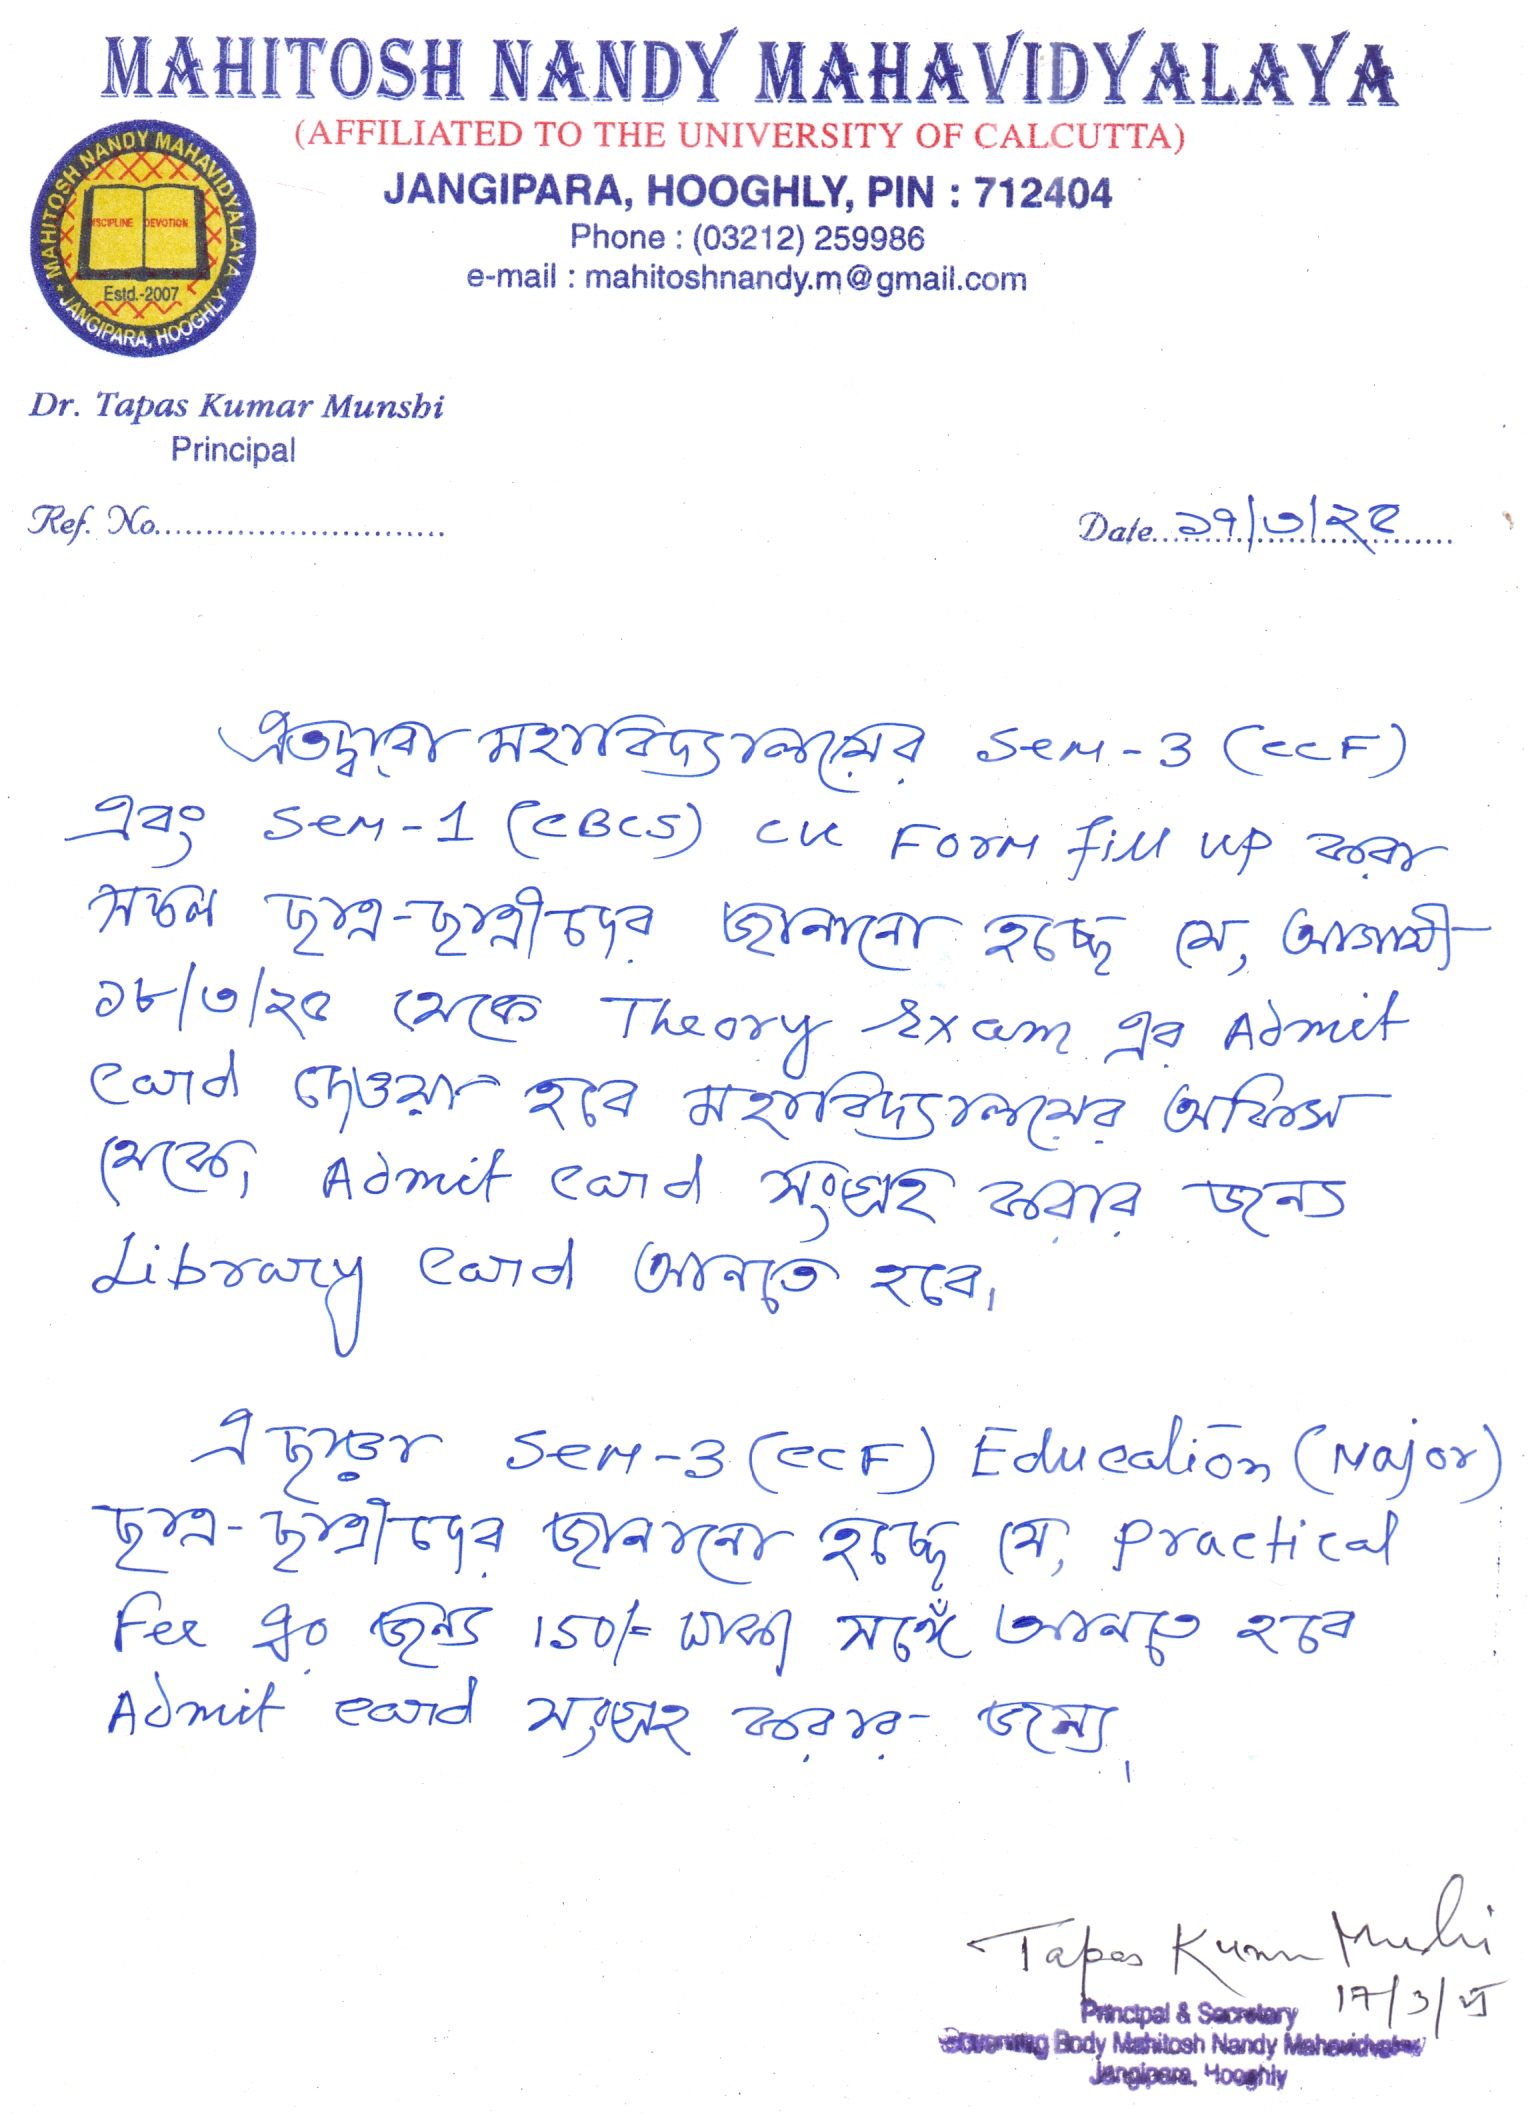 MAHITOSH NANDY MAHAVIDYALAYA
(AFFILIATED TO THE UNIVERSITY OF CALCUTTA)
JANGIPARA, HOOGHLY, PIN : 712404
Phone : (03212) 259986
e-mail : mahitoshnandy.m@gmail.com
MAHITOSH NANDY MAHAVIDYALAYA
DISCIPLINE DEVOTION
Estd.-2007
JANGIPARA, HOOGHLY
Dr. Tapas Kumar Munshi
Principal
Ref. No..............................
Date..১৭/৩/২৫
এতদ্বারা মহাবিদ্যালয়ের Sem-3 (CCF)
এবং Sem-1 (CBCS) CU Form fill up করা
সকল ছাত্র-ছাত্রীদের জানানো হচ্ছে যে, আগামী
১৮/৩/২৫ থেকে Theory Exam এর Admit
Card দেওয়া হবে মহাবিদ্যালয়ের অফিস
থেকে। Admit Card সংগ্রহ করার জন্য
Library Card আনতে হবে।
এছাড়া Sem-3 (CCF) Education (Major)
ছাত্র-ছাত্রীদের জানানো হচ্ছে যে, Practical
Fee এর জন্য 150/= টাকা সঙ্গে আনতে হবে
Admit Card সংগ্রহ করার জন্য।
Tapas Kumar Munshi
17/3/25
Principal & Secretary
Governing Body Mahitosh Nandy Mahavidyalay
Jangipara, Hooghly